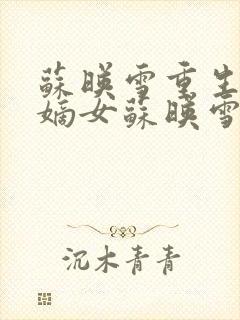 蘇暎雪重生
嫡女蘇暎雪
沉木青青